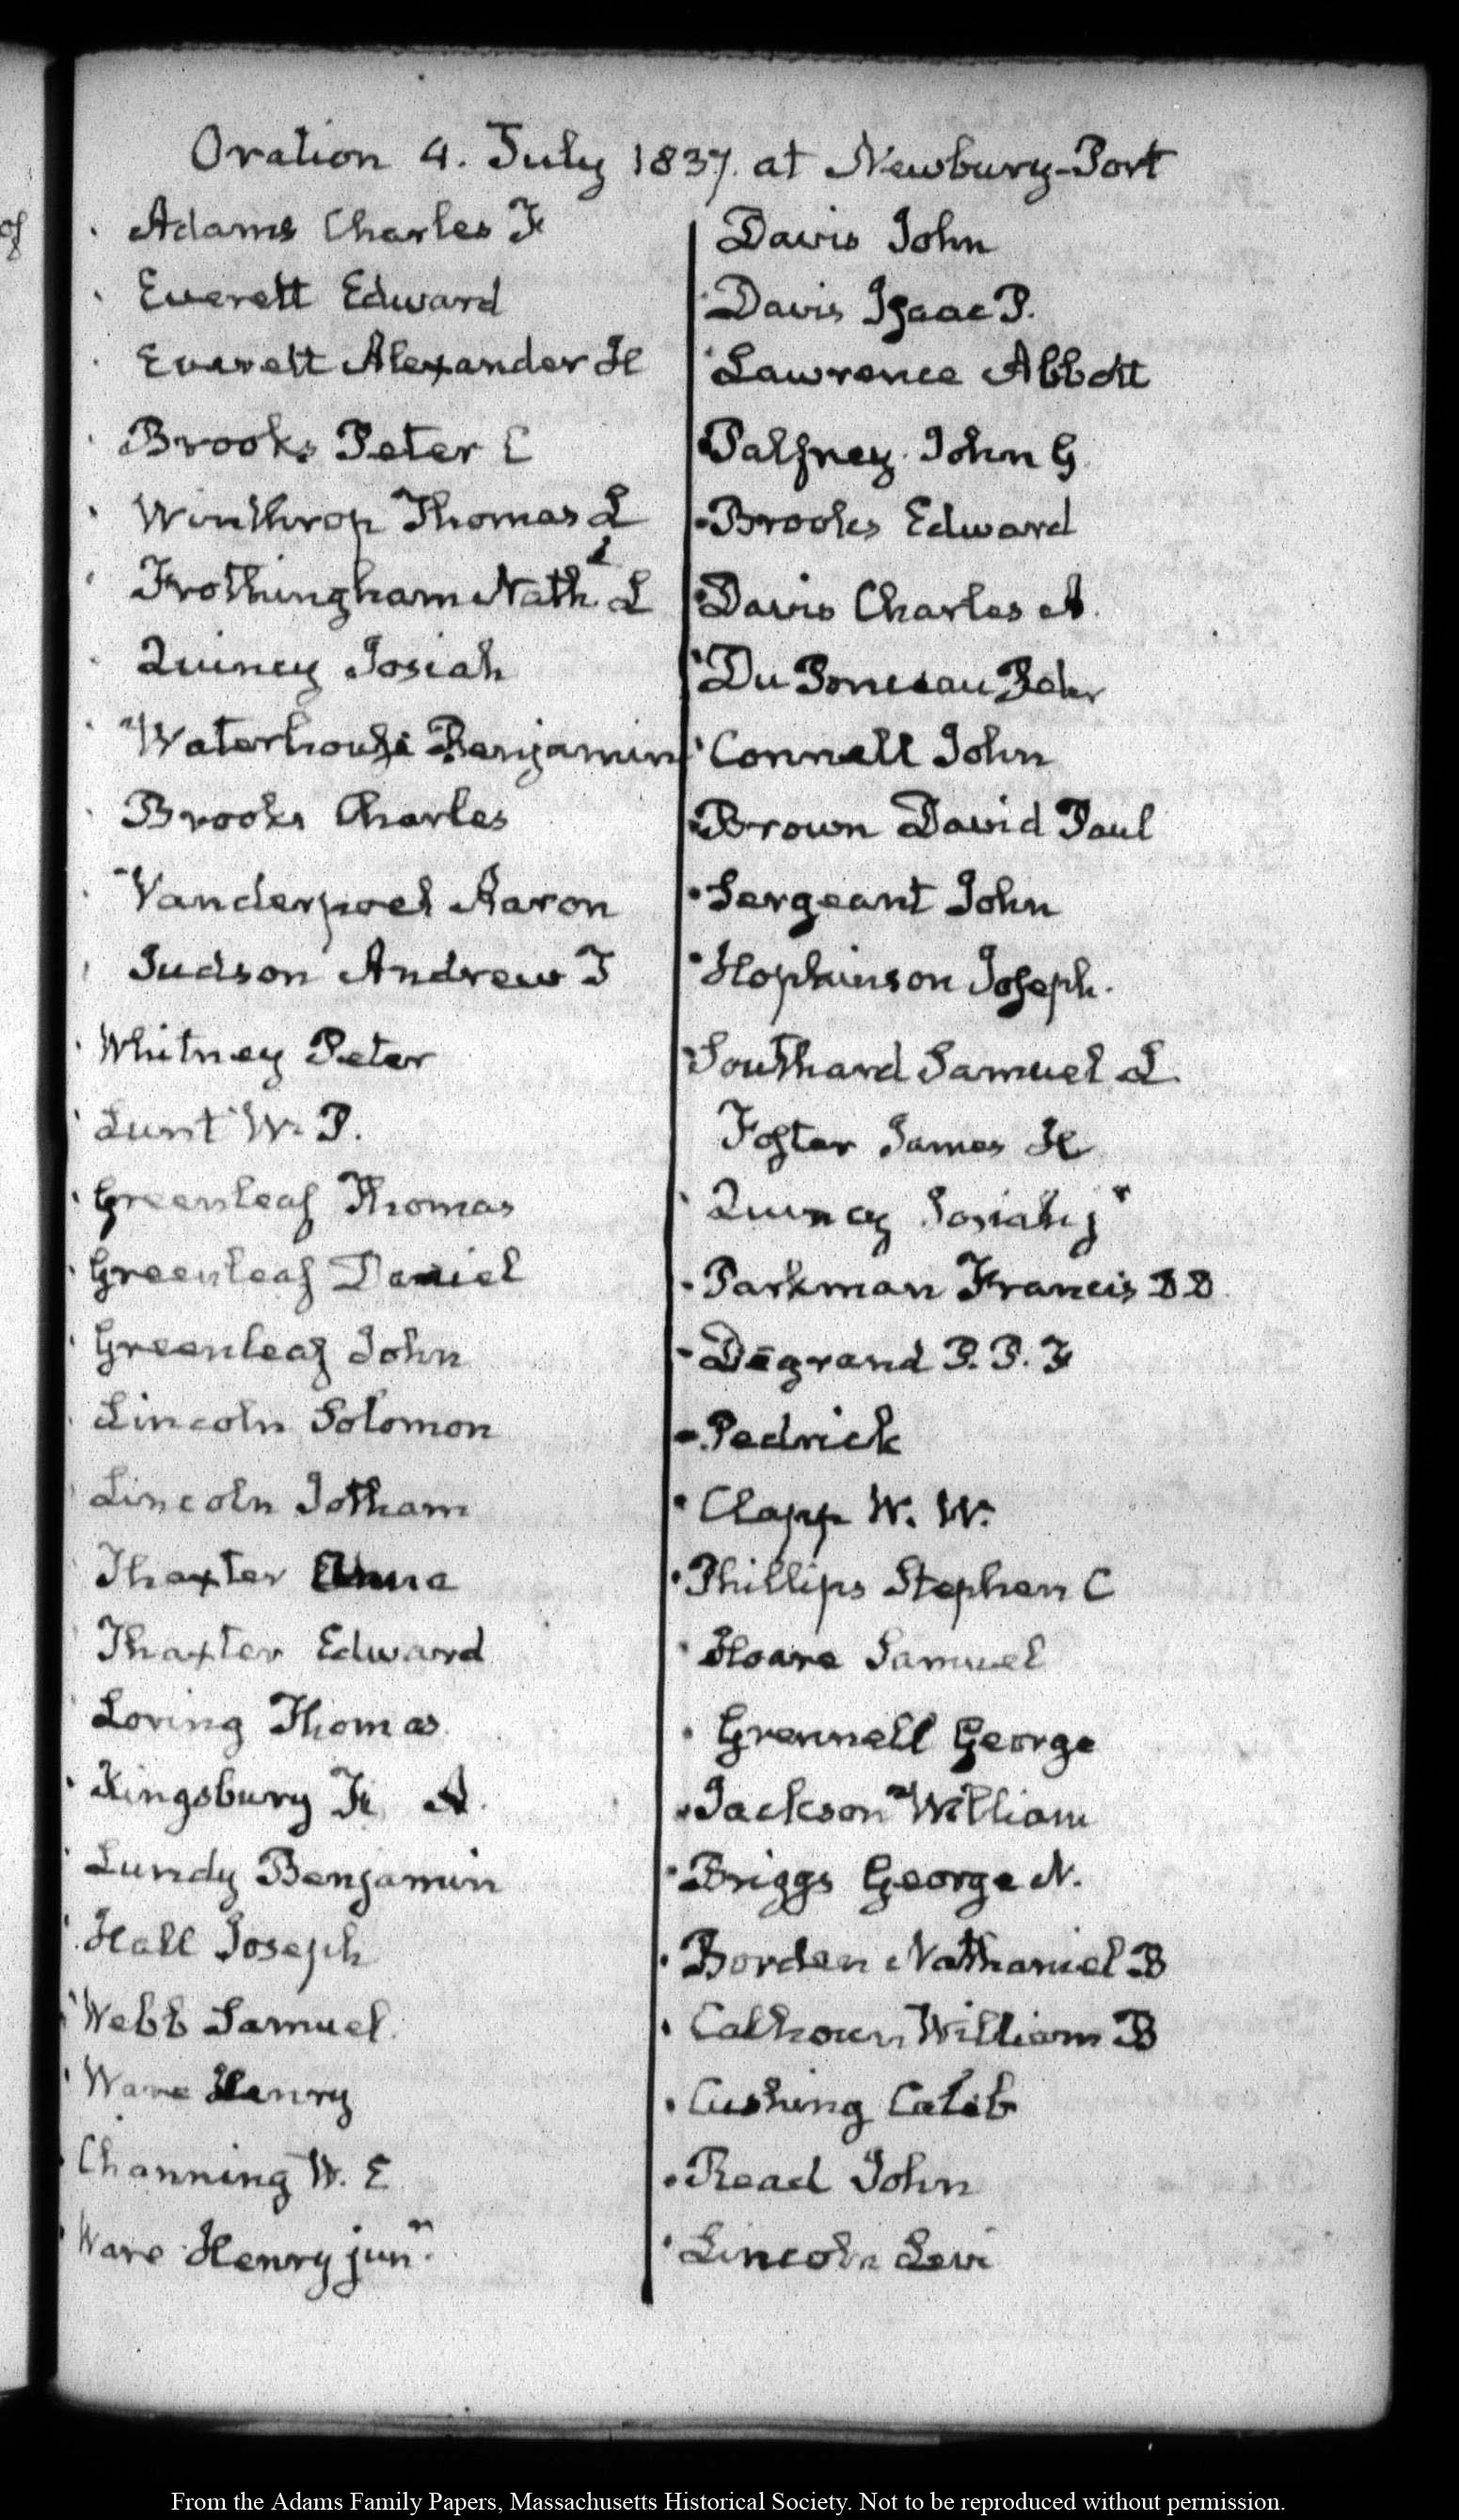 Oration 4. July 1837. at Newbury-Port
Adams Charles F
Everett Edward
Everett Alexander H
Brooks Peter C
Winthrop Thomas L
Frothingham Nath.l L
Quincy Josiah
Waterhouse Benjamin
Brooks Charles
Vanderpoel Aaron
Judson Andrew T
Whitney Peter
Lunt W. P.
Greenleaf Thomas
Greenleaf Daniel
Greenleaf John
Lincoln Solomon
Lincoln Jotham
Thaxter Anna
Thaxter Edward
Loring Thomas
Kingsbury Fr A.
Lundy Benjamin
Hall Joseph
Webb Samuel.
Ware Henry
Channing W. E
Ware Henry junr.
Davis John
Davis Isaac P.
Lawrence Abbott
Palfrey John G
Brooks Edward
Davis Charles A.
Du Ponceau Peter
Connell John
Brown David Paul
Sergeant John
Hopkinson Joseph.
Southard Samuel L.
Foster James H
Quincy Josiah jr
Parkman Francis DD.
Degrand P. P. F
Pedrick
Clapp W. W.
Phillips Stephen C
Hoare Samuel
Grennell George
Jackson William
Briggs George N.
Borden Nathaniel B
Calhoun William B
Cushing Caleb
Read John
Lincoln Levi
of
From the Adams Family Papers, Massachusetts Historical Society. Not to be reproduced without permission.